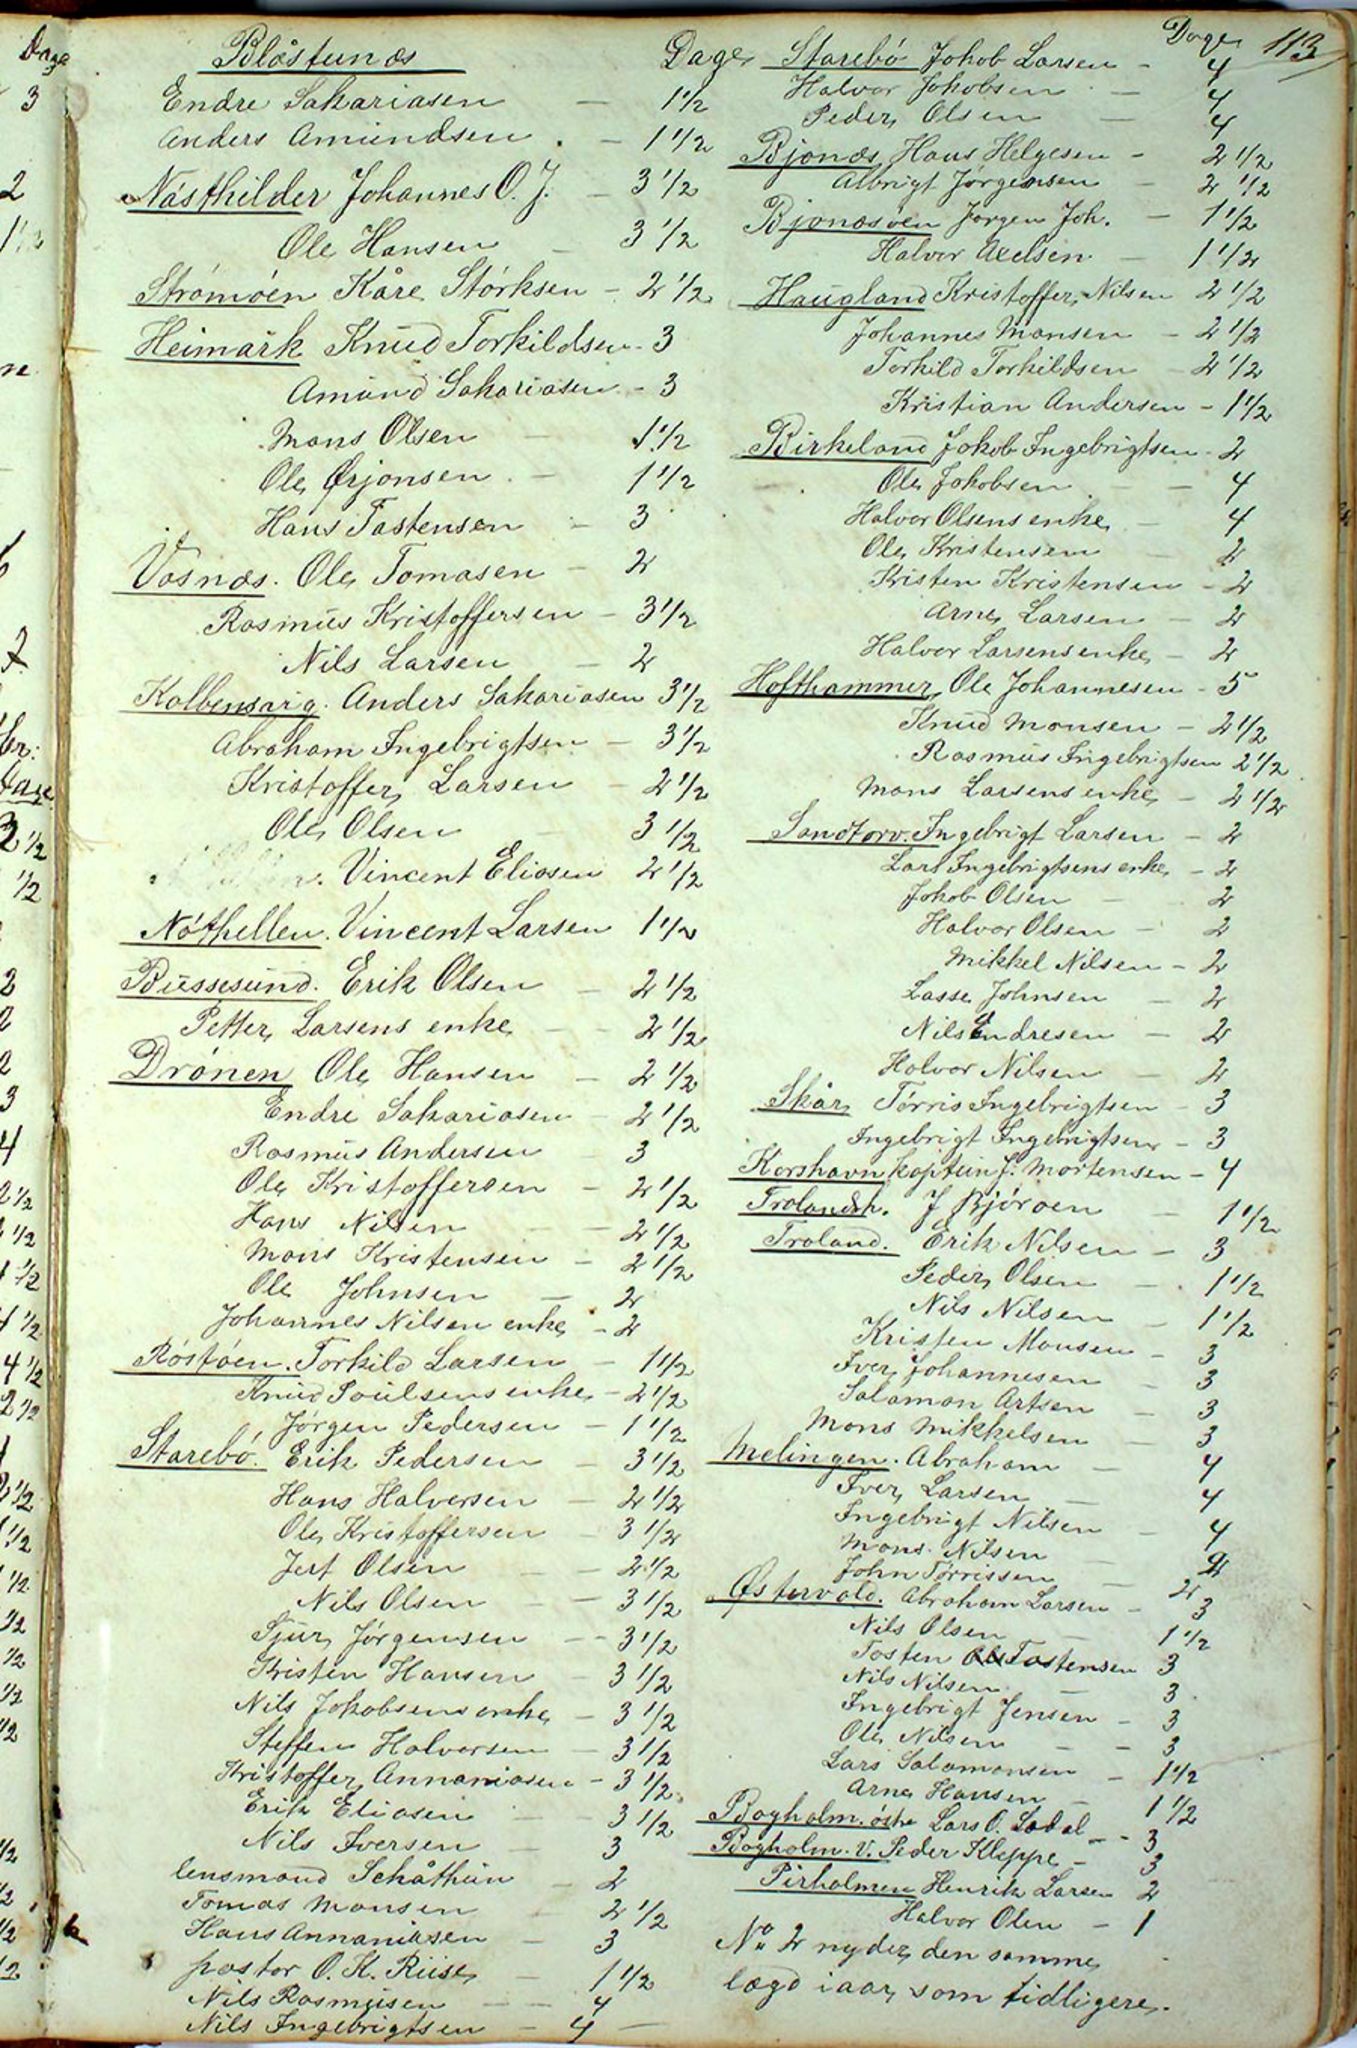 113
Blåstunæs Dage
Endre Sakariasen — 1 1/2
Anders Amundsen — 1 1/2
Nåsthilder Johannes O. J. — 3 1/2
Ole Hansen — 3 1/2
Strømøen Kåre Størksen — 2 1/2
Heimark Knud Torkildsen — 3
Amund Sakariasen — 3
Mons Olsen — 1 1/2
Ole Ørjansen — 1 1/2
Hans Tastensen — 3
Vasnæs. Ole Tomasen — 2
Rasmus Kristoffersen — 3 1/2
Nils Larsen — 2
Kolbensvig. Anders Sakariasen 3 1/2
Abraham Ingebrigtsen — 3 1/2
Kristoffer Larsen — 2 1/2
Ole Olsen 3 1/2
Vincent Eliasen 2 1/2
Nóthellen. Vincent Larsen 1 1/2
Bussesund. Erik Olsen — 2 1/2
Petter Larsens enke — 2 1/2
Drónen Ole Hansen — 2 1/2
Endre Sakariasen — 2 1/2
Rasmus Andersen 3
Ole Kristoffersen — 2 1/2
Hans Nilsen — 2 1/2
Mons Kristensen — 2 1/2
Ole Johnsen — 2
Johannes Nilsen enke — 2
Róstóen. Torkild Larsen — 1 1/2
Knud Poulsens enke — 2 1/2
Jørgen Pedersen — 1 1/2
Starebó. Erik Pedersen — 3 1/2
Hans Halvorsen — 2 1/2
Ole Kristoffersen — 3 1/2
Jert Olsen — 2 1/2
Nils Olsen — 3 1/2
Sjur Jørgensen — 3 1/2
Kristen Hansen — 3 1/2
Nils Jakobsens enke — 3 1/2
Steffen Halvorsen — 3 1/2
Kristoffer Annaniasen — 3 1/2
Erik Eliasen — 3 1/2
Nils Iversen — 3
lensmand Schåthun — 2
Tomas Monsen — 2 1/2
Hans Annaniasen — 3
pastor O. K. Riise — 1 1/2
Nils Rasmusen — 4
Nils Ingebrigtsen — 4
Dage
Starebó Jakob Larsen — 4
Halvor Jakobsen — 4
Peder Olsen — 4
Bjonæs Hans Helgesen — 2 1/2
Albrigt Jørgensen — 2 1/2
Bjonæsøen Jørgen Joh. — 1 1/2
Halvor Axelsen — 1 1/2
Haugland Kristoffer Nilsen 2 1/2
Johannes Monsen — 2 1/2
Torkild Torkildsen — 2 1/2
Kristian Andersen — 1 1/2
Birkeland Jakob Ingebrigtsen 2
Ole Jakobsen — 4
Halvor Olsens enke — 4
Ole Kristensen — 2
Kristen Kristensen — 2
Arne Larsen — 2
Halvor Larsens enke — 2
Hofthammer Ole Johannesen — 5
Knud Monsen — 2 1/2
Rasmus Ingebrigtsen 2 1/2
Mons Larsens enke — 2 1/2
Sandtorv. Ingebrigt Larsen — 2
Lars Ingebrigtsens enke — 2
Jakob Olsen — 2
Halvor Olsen — 2
Mikkel Nilsen — 2
Lasse Johnsen — 2
Nils Endresen — 2
Halvor Nilsen — 2
Skår Tørris Ingebrigtsen — 3
Ingebrigt Ingebrigtsen — 3
Korshavn kaptein J. Mortensen — 4
Trolandsh. J Bjóroen — 1 1/2
Troland. Erik Nilsen — 3
Peder Olsen — 1 1/2
Nils Nilsen — 1 1/2
Kristen Monsen — 3
Iver Johannesen — 3
Salamon Artsen — 3
Mons Mikkelsen — 3
Melingen. Abraham — 4
Iver Larsen — 4
Ingebrigt Nilsen — 4
Mons Nilsen 2
John Tørrissen — 2
Østervold. Abraham Larsen — 3
Nils Olsen — 1 1/2
Tosten Tostensen 3
Nils Nilsen — 3
Ingebrigt Jensen — 3
Ole Nilsen — 3
Lars Salamonsen — 1 1/2
Arne Hansen — 1 1/2
Bogholm. östre Lars O. Ladal — 3
Bogholm. V. Peder Kleppe — 3
Pirholmen Henrik Larsen 2
Halvor Olen — 1
No 2 nyder den samme
lægd iaar som tidligere.